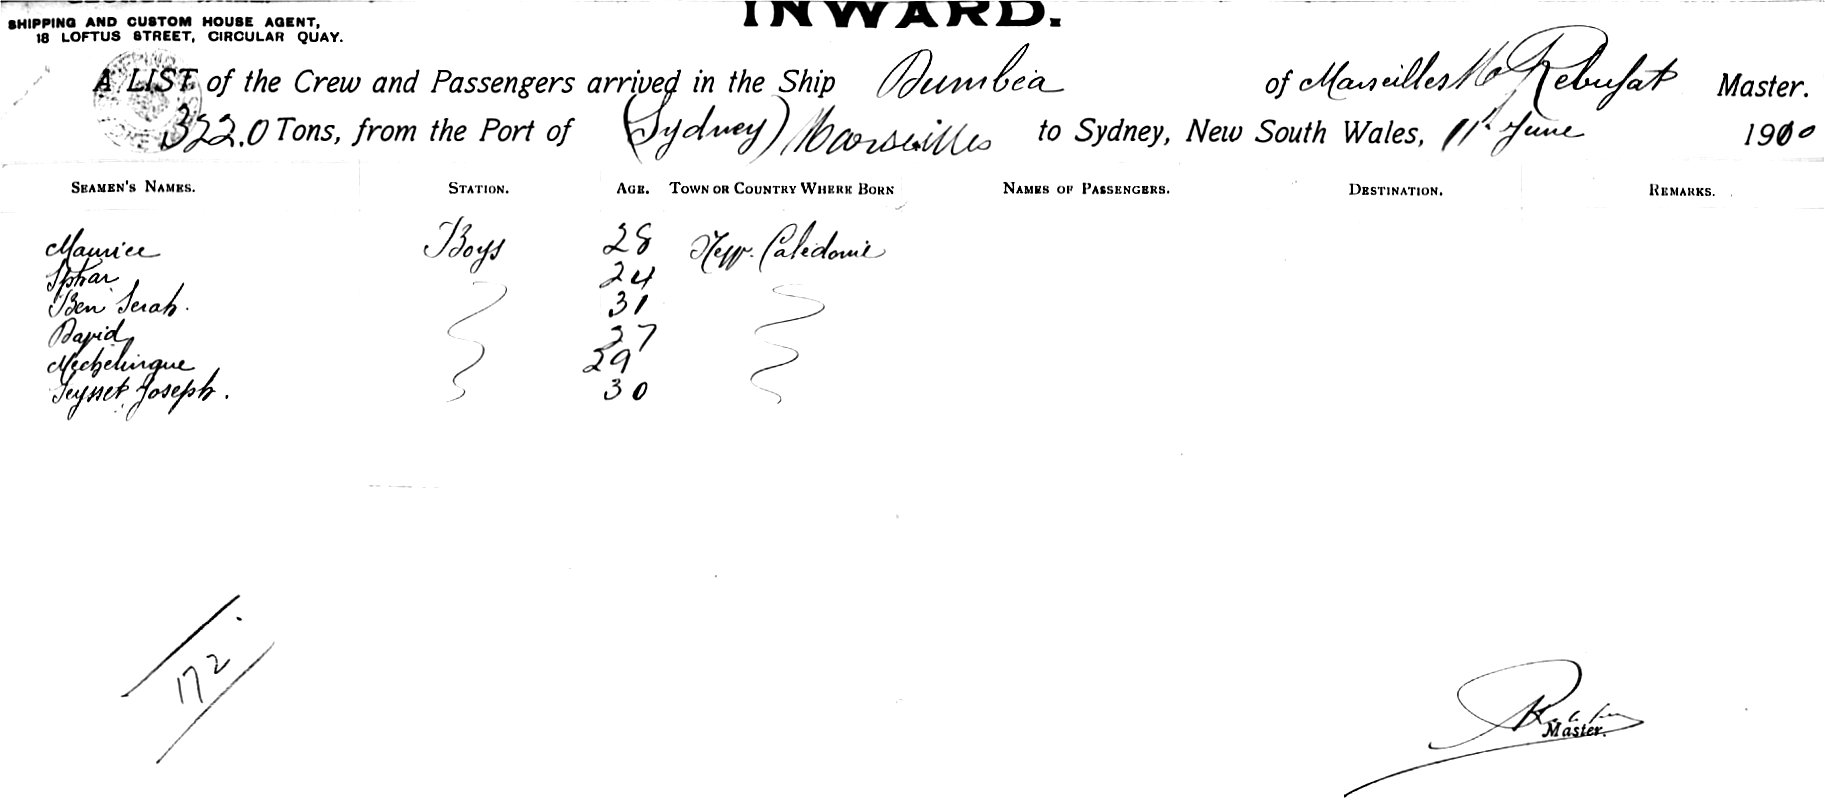 SHIPPING AND CUSTOM HOUSE AGENT,
18 LOFTUS STREET, CIRCULAR QUAY.
INWARD.
A LIST of the Crew and Passengers arrived in the Ship Dumbéa of Marseilles Rebufat Master.
3220 Tons, from the Port of (Sydney) Marseilles to Sydney, New South Wales, 11th June 1900
SEAMEN'S NAMES. STATION. AGE. TOWN OR COUNTRY WHERE BORN NAMES OF PASSENGERS. DESTINATION. REMARKS.
Maurice Boys 28 New. Caledonie
24
Ben Serah. 31
David 27
Mechelingue 29
Teysset Joseph. 30
172
Master.